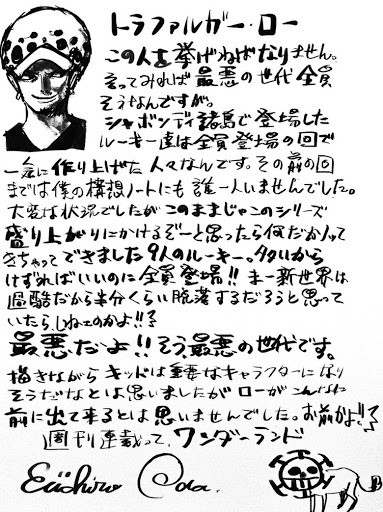 トラファルガー・ロー
この人を挙げねばなりません。
言ってみれば最悪の世代全員
そうなんですが。
シャボンディ諸島で登場した
ルーキー達は全員登場の回で
一気に作り上げた人々なんです。その前の回
までは僕の構想ノートにも誰一人いませんでした。
大変な状況でしたがこのままじゃこのシリーズ
盛り上がりにかけるぞーと思ったら何だか入って
きちゃってできました9人のルーキー。多いから
けずればいいのに全員登場!!まー新世界は
過酷だから半分くらい脱落するだろうと思って
いたら、しねェのかよ!!?
最悪だよ!!そう最悪の世代です。
描きながらキッドは重要なキャラクターになり
そうだなとは思いましたがローがこんなに
前に出て来るとは思いませんでした。お前かよ!!?
週刊連載って、ワンダーランド
Eiichiro Oda.